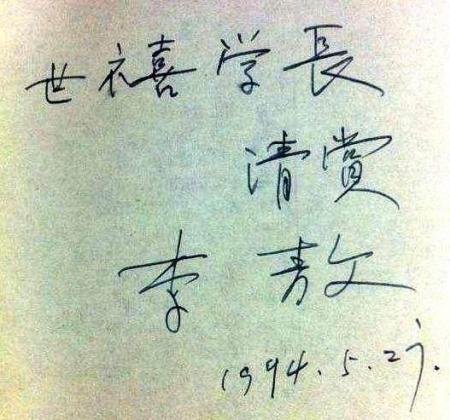 世禧学長
清赏
李敖
1994.5.27.